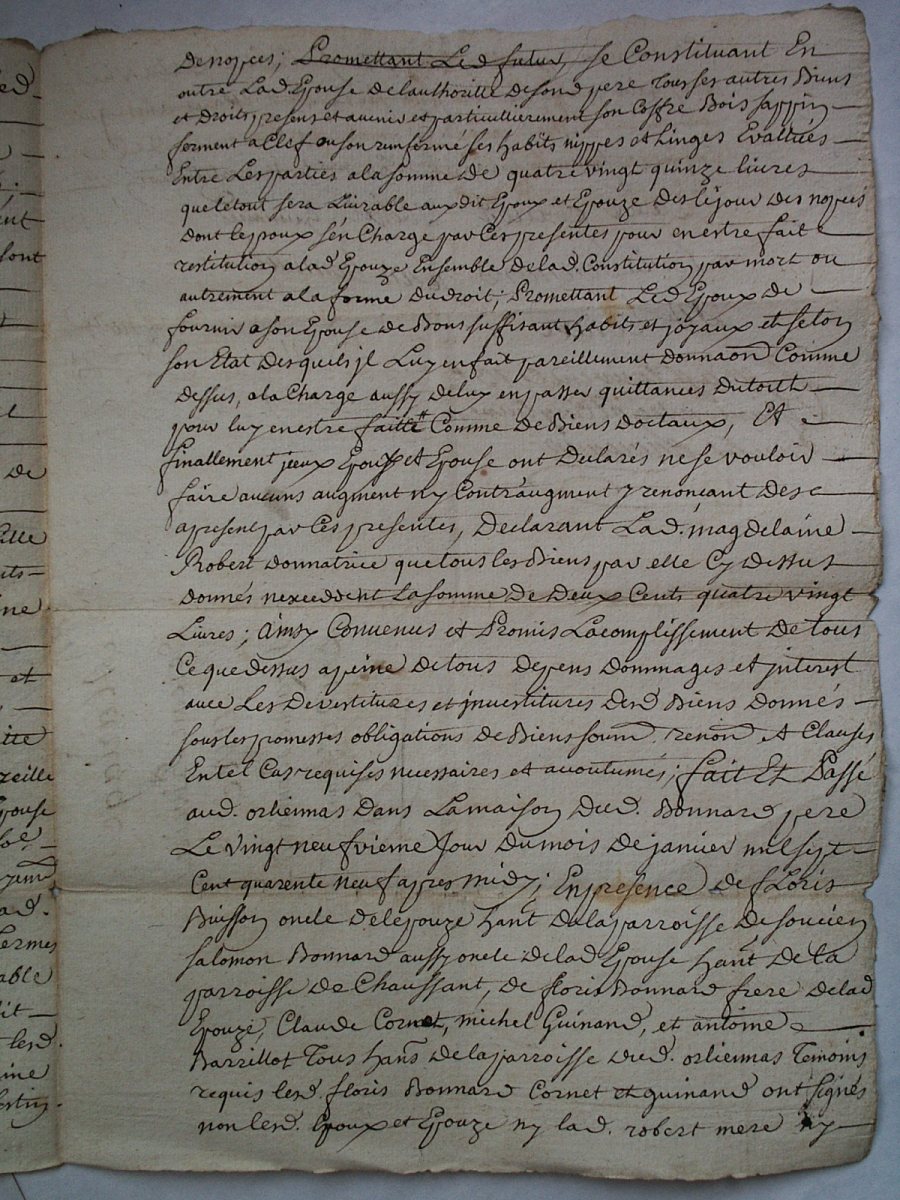 ed
ent
sont
de
ille
ine
et
itte
reille
pouse
lad.
termes
able
dit
lesd.
ine
denopces; Promettant Led futur, se Constituant En
outre Lad Epouse de lauthoritté desond pere Tous ses autres Biens
et droits presens et avenir et particullierement son Coffre Bois sappin
ferment a Clef ou son renfermé ses habits nippes et Linges Evallués
Entre Les parties a la somme de quatre vingt quinze livres
que le tout sera Livrable aux dit Epoux et Epouze des le jour des nopces
dont lepoux s'en Charge par Ces presentes pour en estre fait
restitution a lad Epouze Ensemble de lad. Constitution par mort ou
autrement a la forme du droit; Promettant Led Epoux de
fournir a son Epouse de Bons suffisant habits et joyaux et selon
son Etat desquels jl Luy en fait pareillement donnaon Comme
dessus, a la Charge aussy de luy en passer quittances du tout
pour luy en estre faitte Comme de Biens doctaux, Et
finallement jceux Epoux et Epouse ont declarés ne se vouloir
faire aucuns augment ny Contraugment y renonceant des
apresent par Ces presentes, Declarant Lad. magdelaine
Robert donnatrice que tous les Biens par elle Cy dessus
donnés nexceddent La somme de deux Cents quatre vingt
Livres; ainsy Convenus et Promis Lacomplissement de tous
Ce que dessus a peine de tous depens dommages et jnterest
avec Les devestitures et jnvestitures desd Biens donnés
sous les promesses obligations de Biens soumd. renond. et Clauses
En tel Cas requises necessaires et acoutumés; fait Et Passé
aud. orliennas dans La maison dud. Bonnard pere
Le vingt neufvieme Jour du mois de janvier mil sept
Cent quarente neuf apres midy; En presence de floris
Buisson oncle de lepouze hant de la parroisse de soucieu
salomon Bonnard aussy oncle de lad Epouse hant de la
parroisse de Chaussant, de floris Bonnard frere de lad
Epouze, Claude Cornet, michel Guinand, et antoine
Barrillot Tous hans de la parroisse dud. orliennas Temoins
requis lesd. floris Bonnard Cornet et guinand ont signés
non lesd. Epoux et Epouze ny lad. robert mere ny